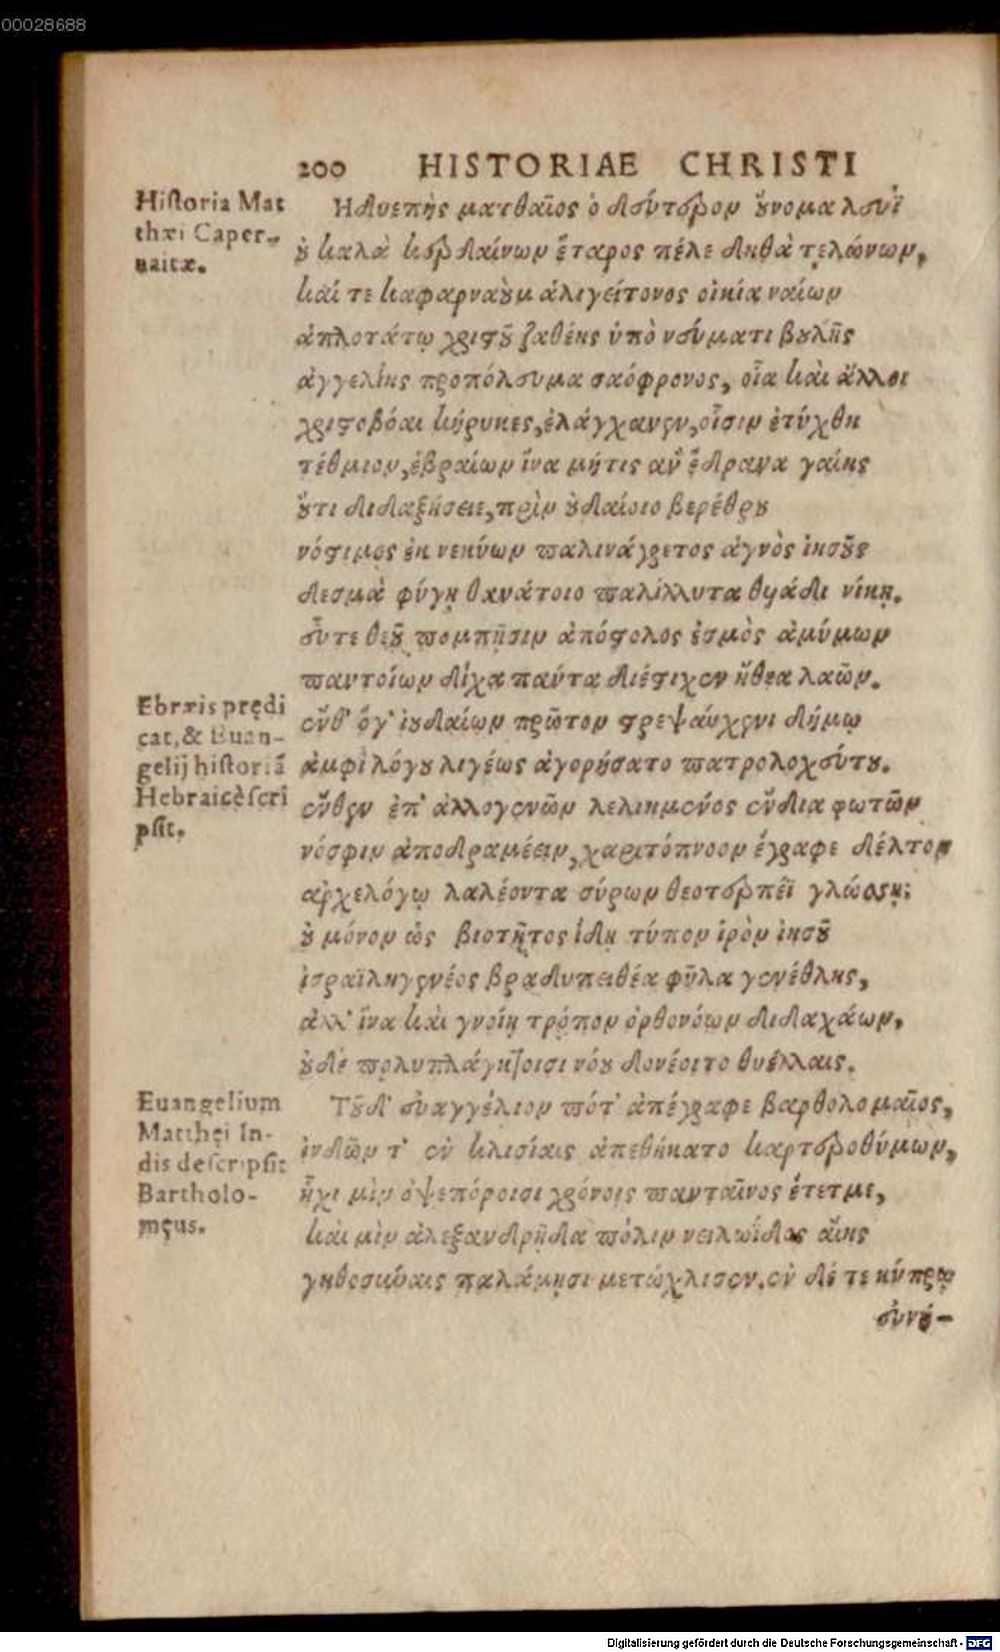 00028688
200 HISTORIAE CHRISTI
Historia Mat
thæi Caper-
naitæ.
Ηδυεπὴς ματθαῖος ὁ δεύτερον οὔνομα λευῒ
οὐ καλὰ κερδαίνων ἕταρος πέλε δηθὰ τελώνων,
καί τε καφαρναοὺμ ἁλιγείτονος οἰκία ναίων
ἁπλοτάτῳ χριστοῦ ζαθέης ὑπὸ νεύματι βουλῆς
ἀγγελίης προπόλευμα σαόφρονος, οἷα καὶ ἄλλοι
χριστοβόαι κήρυκες, ἐλάγχανεν, οἷσιν ἐτύχθη
τέθμιον, ἑβραίων ἵνα μήτις ἀν' ἕδρανα γαίης
οὔτι διδαξήσειε, πρὶν οὐδαίοιο βερέθρου
νόστιμος ἐκ νεκύων παλινάγρετος ἁγνὸς ἰησοῦς
δεσμὰ φύγῃ θανάτοιο παλίλλυτα θυάδι νίκῃ.
εὖτε θεοῦ πομπῇσιν ἀπόστολος ἑσμὸς ἀμύμων
παντοίων δίχα πάντα διέστιχεν ἤθεα λαῶν.
Ebræis prędi
cat, & Euan-
gelij historiā
Hebraicè scri
psit.
ἔνθ' ὅγ' ἰουδαίων πρῶτον στρεψαύχενι δήμῳ
ἀμφὶ λόγου λιγέως ἀγορήσατο πατρολοχεύτου.
ἔνθεν ἐπ' ἀλλογενῶν λελιημένος ἔνδια φωτῶν
νόσφιν ἀποδραμέειν, χαριτόπνοον ἔγραφε δέλτον
ἀρχελόγῳ λαλέοντα σύρων θεοτερπέϊ γλώσσῃ:
οὐ μόνον ὡς βιοτῆτος ἴδῃ τύπον ἱρὸν ἰησοῦ
ἰσραϊληγενέος βραδυπειθέα φῦλα γενέθλης,
ἀλλ' ἵνα καὶ γνοίη τρόπον ὀρθονόων διδαχάων,
οὐδὲ πολυπλάγκτοισι νόου δονέοιτο θυέλλαις.
Euangelium
Matthęi In-
dis descripsit
Bartholo-
męus.
Τοῦδ' εὐαγγέλιον πότ' ἀπέγραφε βαρθολομαῖος,
ἰνδῶν τ' ἐν κλισίαις ἀπεθήκατο καρτεροθύμων,
ᾗχι μὶν ὀψεπόροισι χρόνοις πανταῖνος ἔτετμε,
καὶ μὶν ἀλεξανδρῆδα πόλιν νειλωΐδος αἴης
παλάμῃσι μετώχλισεν. ἐν δέ τε κύπρῳ
Digitalisierung gefördert durch die Deutsche Forschungsgemeinschaft - DFG